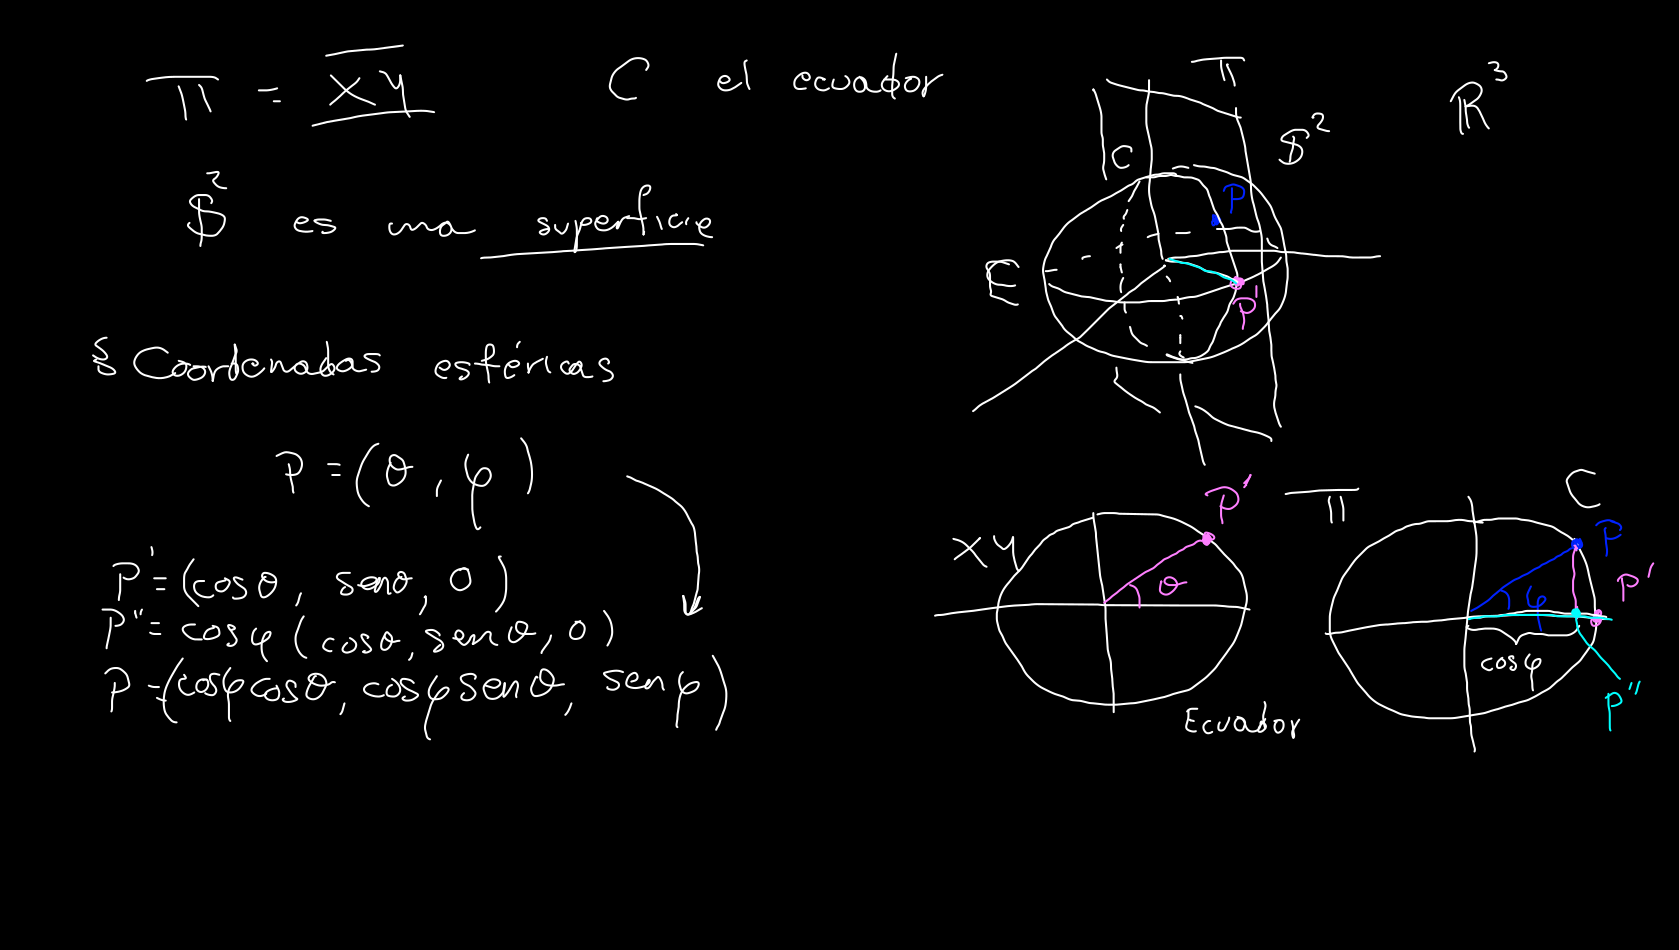 Π = XY C el ecuador
$² es una superficie
§ Coordenadas esféricas
P = (θ, φ)
P' = (cosθ, senθ, 0)
P'' = cosφ (cosθ, senθ, 0)
P = (cosφ cosθ, cosφ senθ, senφ)
Π
ℝ³
$²
C
P
E
P'
XY
P'
θ
Ecuador
Π
C
P
P'
φ
cosφ
P''